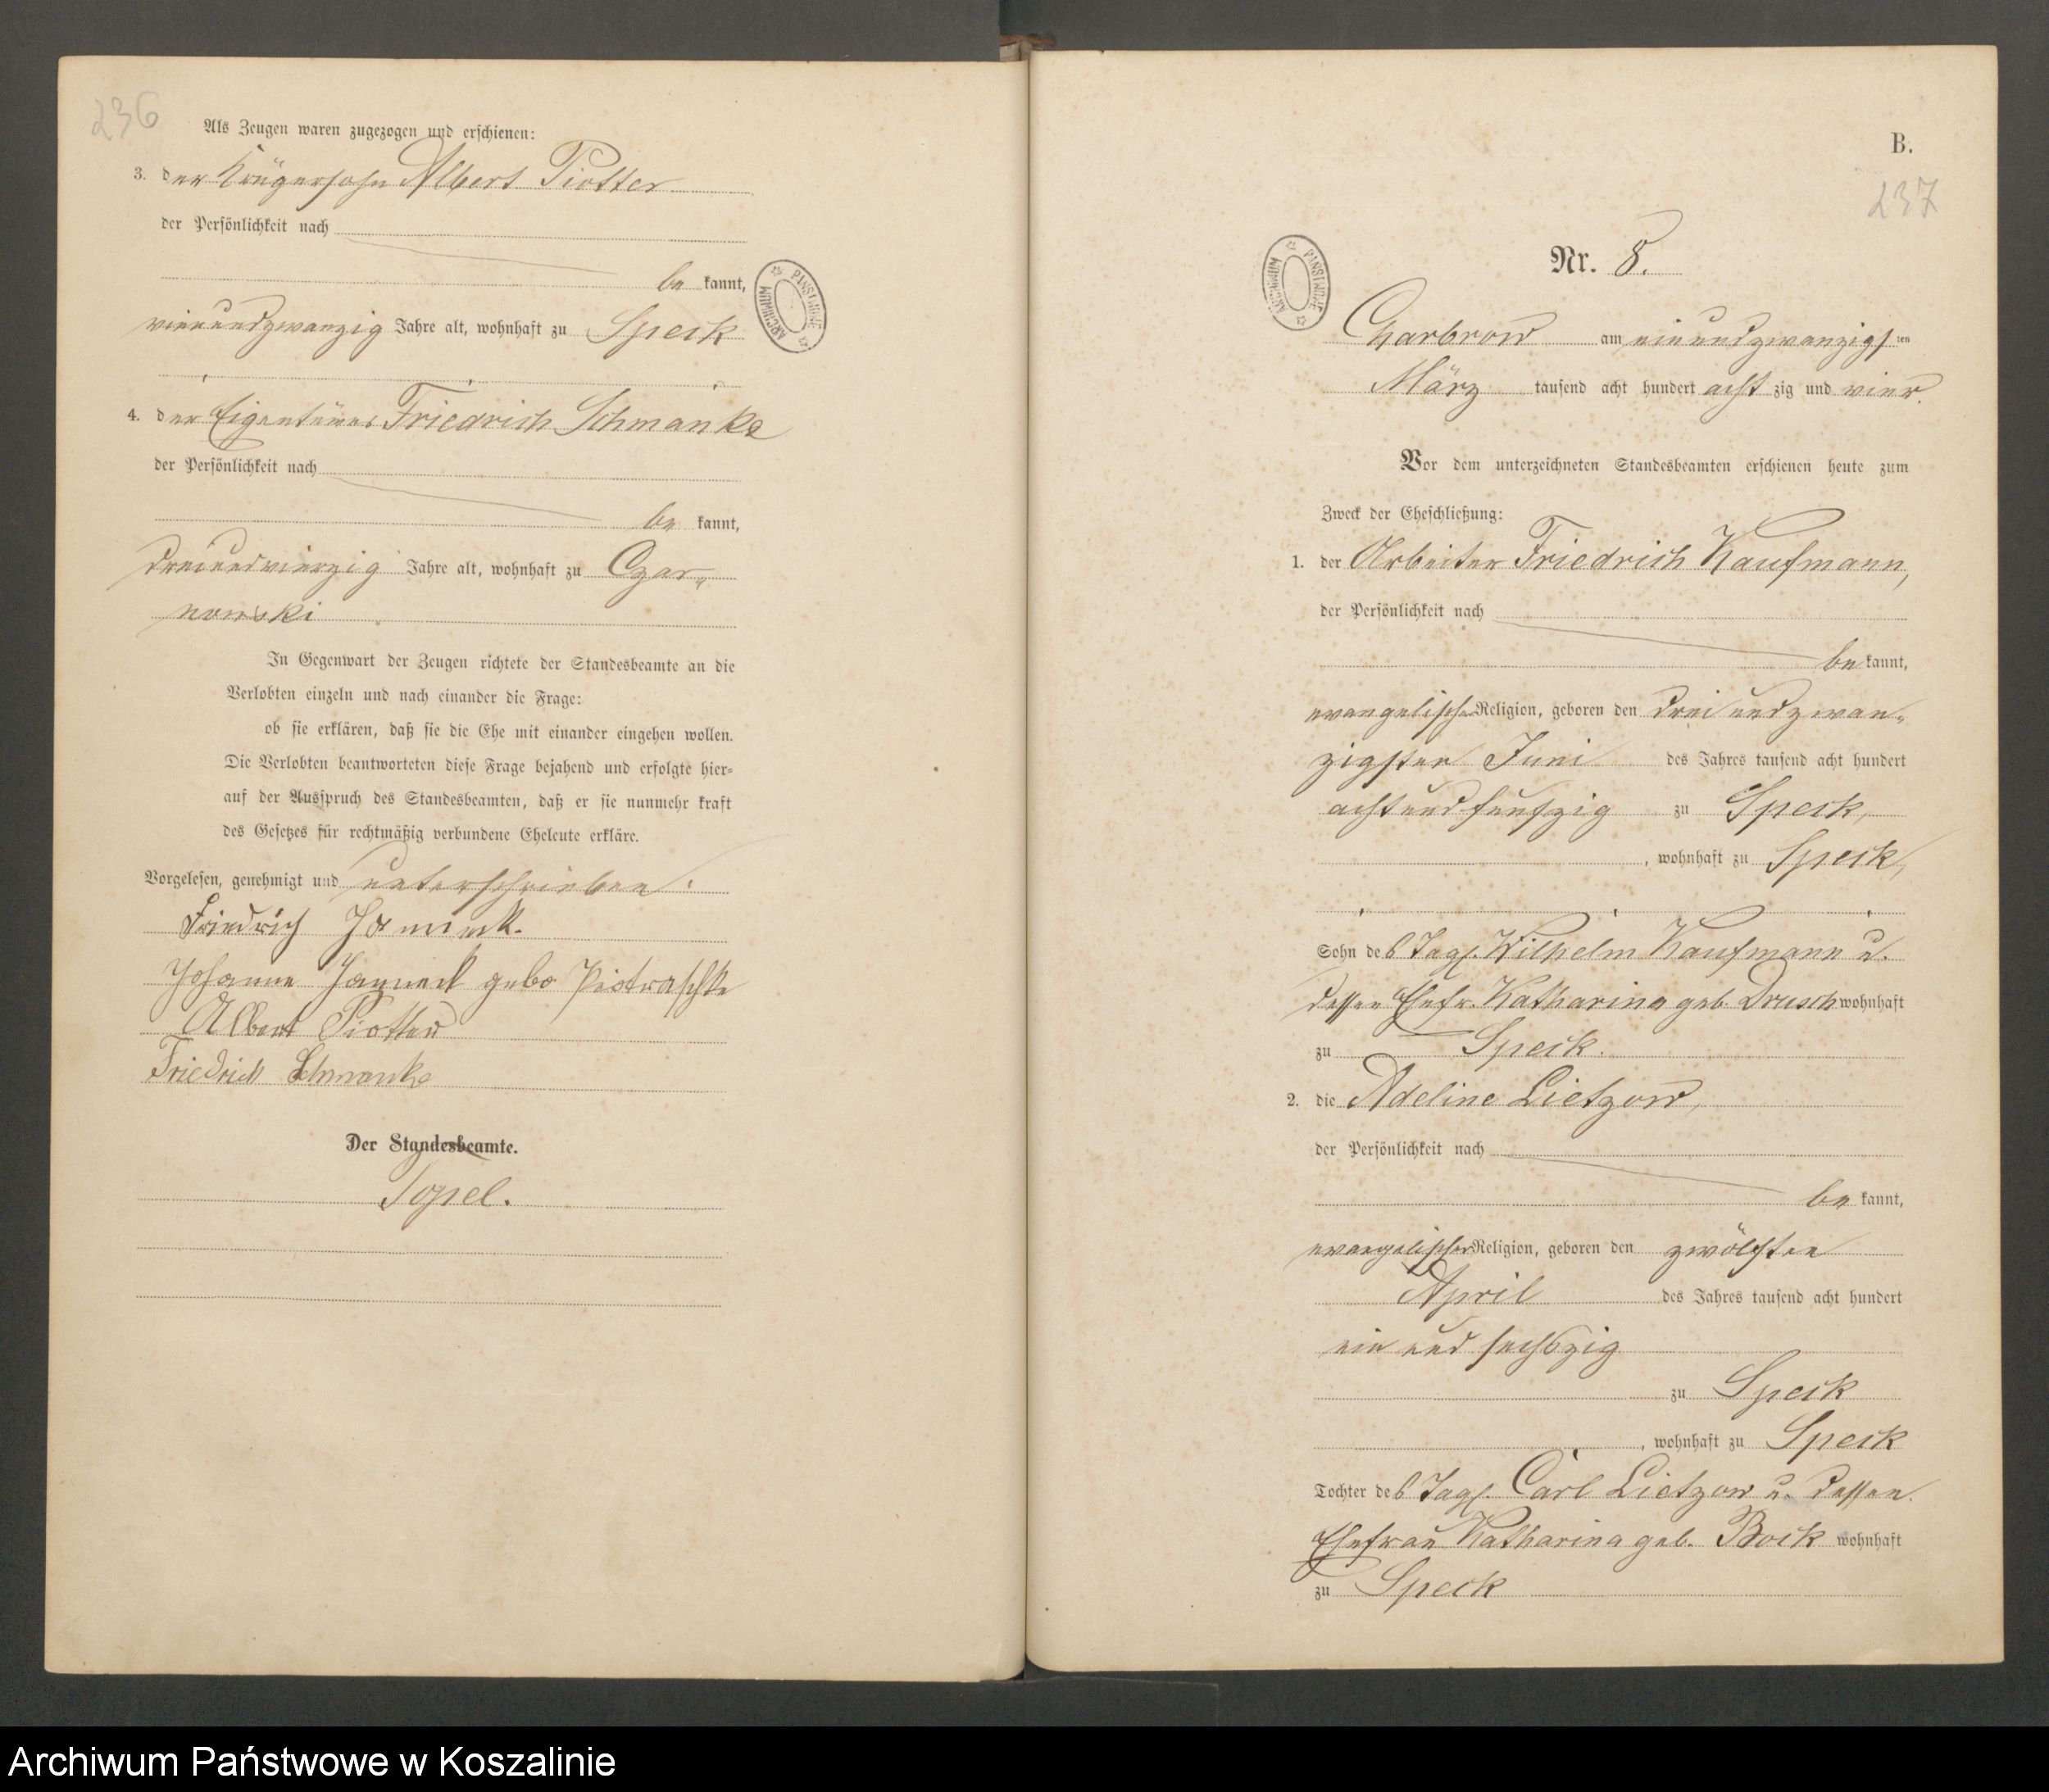 236
Als Zeugen waren zugezogen und erschienen:
3. der Krügersohn Albert Piotter
der Persönlichkeit nach
be kannt,
vierundzwanzig Jahre alt, wohnhaft zu Speck
4. der Eigentümer Friedrich Schmanke
der Persönlichkeit nach
be kannt,
dreiundvierzig Jahre alt, wohnhaft zu Czar-
nowski
In Gegenwart der Zeugen richtete der Standesbeamte an die
Verlobten einzeln und nach einander die Frage:
ob sie erklären, daß sie die Ehe mit einander eingehen wollen.
Die Verlobten beantworteten diese Frage bejahend und erfolgte hier-
auf der Ausspruch des Standesbeamten, daß er sie nunmehr kraft
des Gesetzes für rechtmäßig verbundene Eheleute erkläre.
Vorgelesen, genehmigt und unterschrieben.
Friedrich
Johanne Janneck gebo Piotraschke
Albert Piotter
Friedrich Schmanke
Der Standesbeamte.
Topel.
ARCHIWUM PAŃSTWOWE
B.
237
ARCHIWUM PAŃSTWOWE
Nr. 8.
Charbrow am einundzwanzigsten
März tausend acht hundert acht zig und vier.
Vor dem unterzeichneten Standesbeamten erschienen heute zum
Zweck der Eheschließung:
1. der Arbeiter Friedrich Kaufmann,
der Persönlichkeit nach
be kannt,
evangelischer Religion, geboren den dreiundzwan-
zigsten Juni des Jahres tausend acht hundert
achtundfunfzig zu Speck,
, wohnhaft zu Speck,
Sohn des Tagl. Wilhelm Kaufmann u.
dessen Ehefr. Katharina geb. Drusch wohnhaft
zu Speck.
2. die Adeline Lietzow,
der Persönlichkeit nach
be kannt,
evangelischer Religion, geboren den zwölften
April des Jahres tausend acht hundert
ein und sechszig
zu Speck
, wohnhaft zu Speck
Tochter des Tagl. Carl Lietzow u. dessen
Ehefrau Katharina geb. Bock wohnhaft
zu Speck
Archiwum Państwowe w Koszalinie